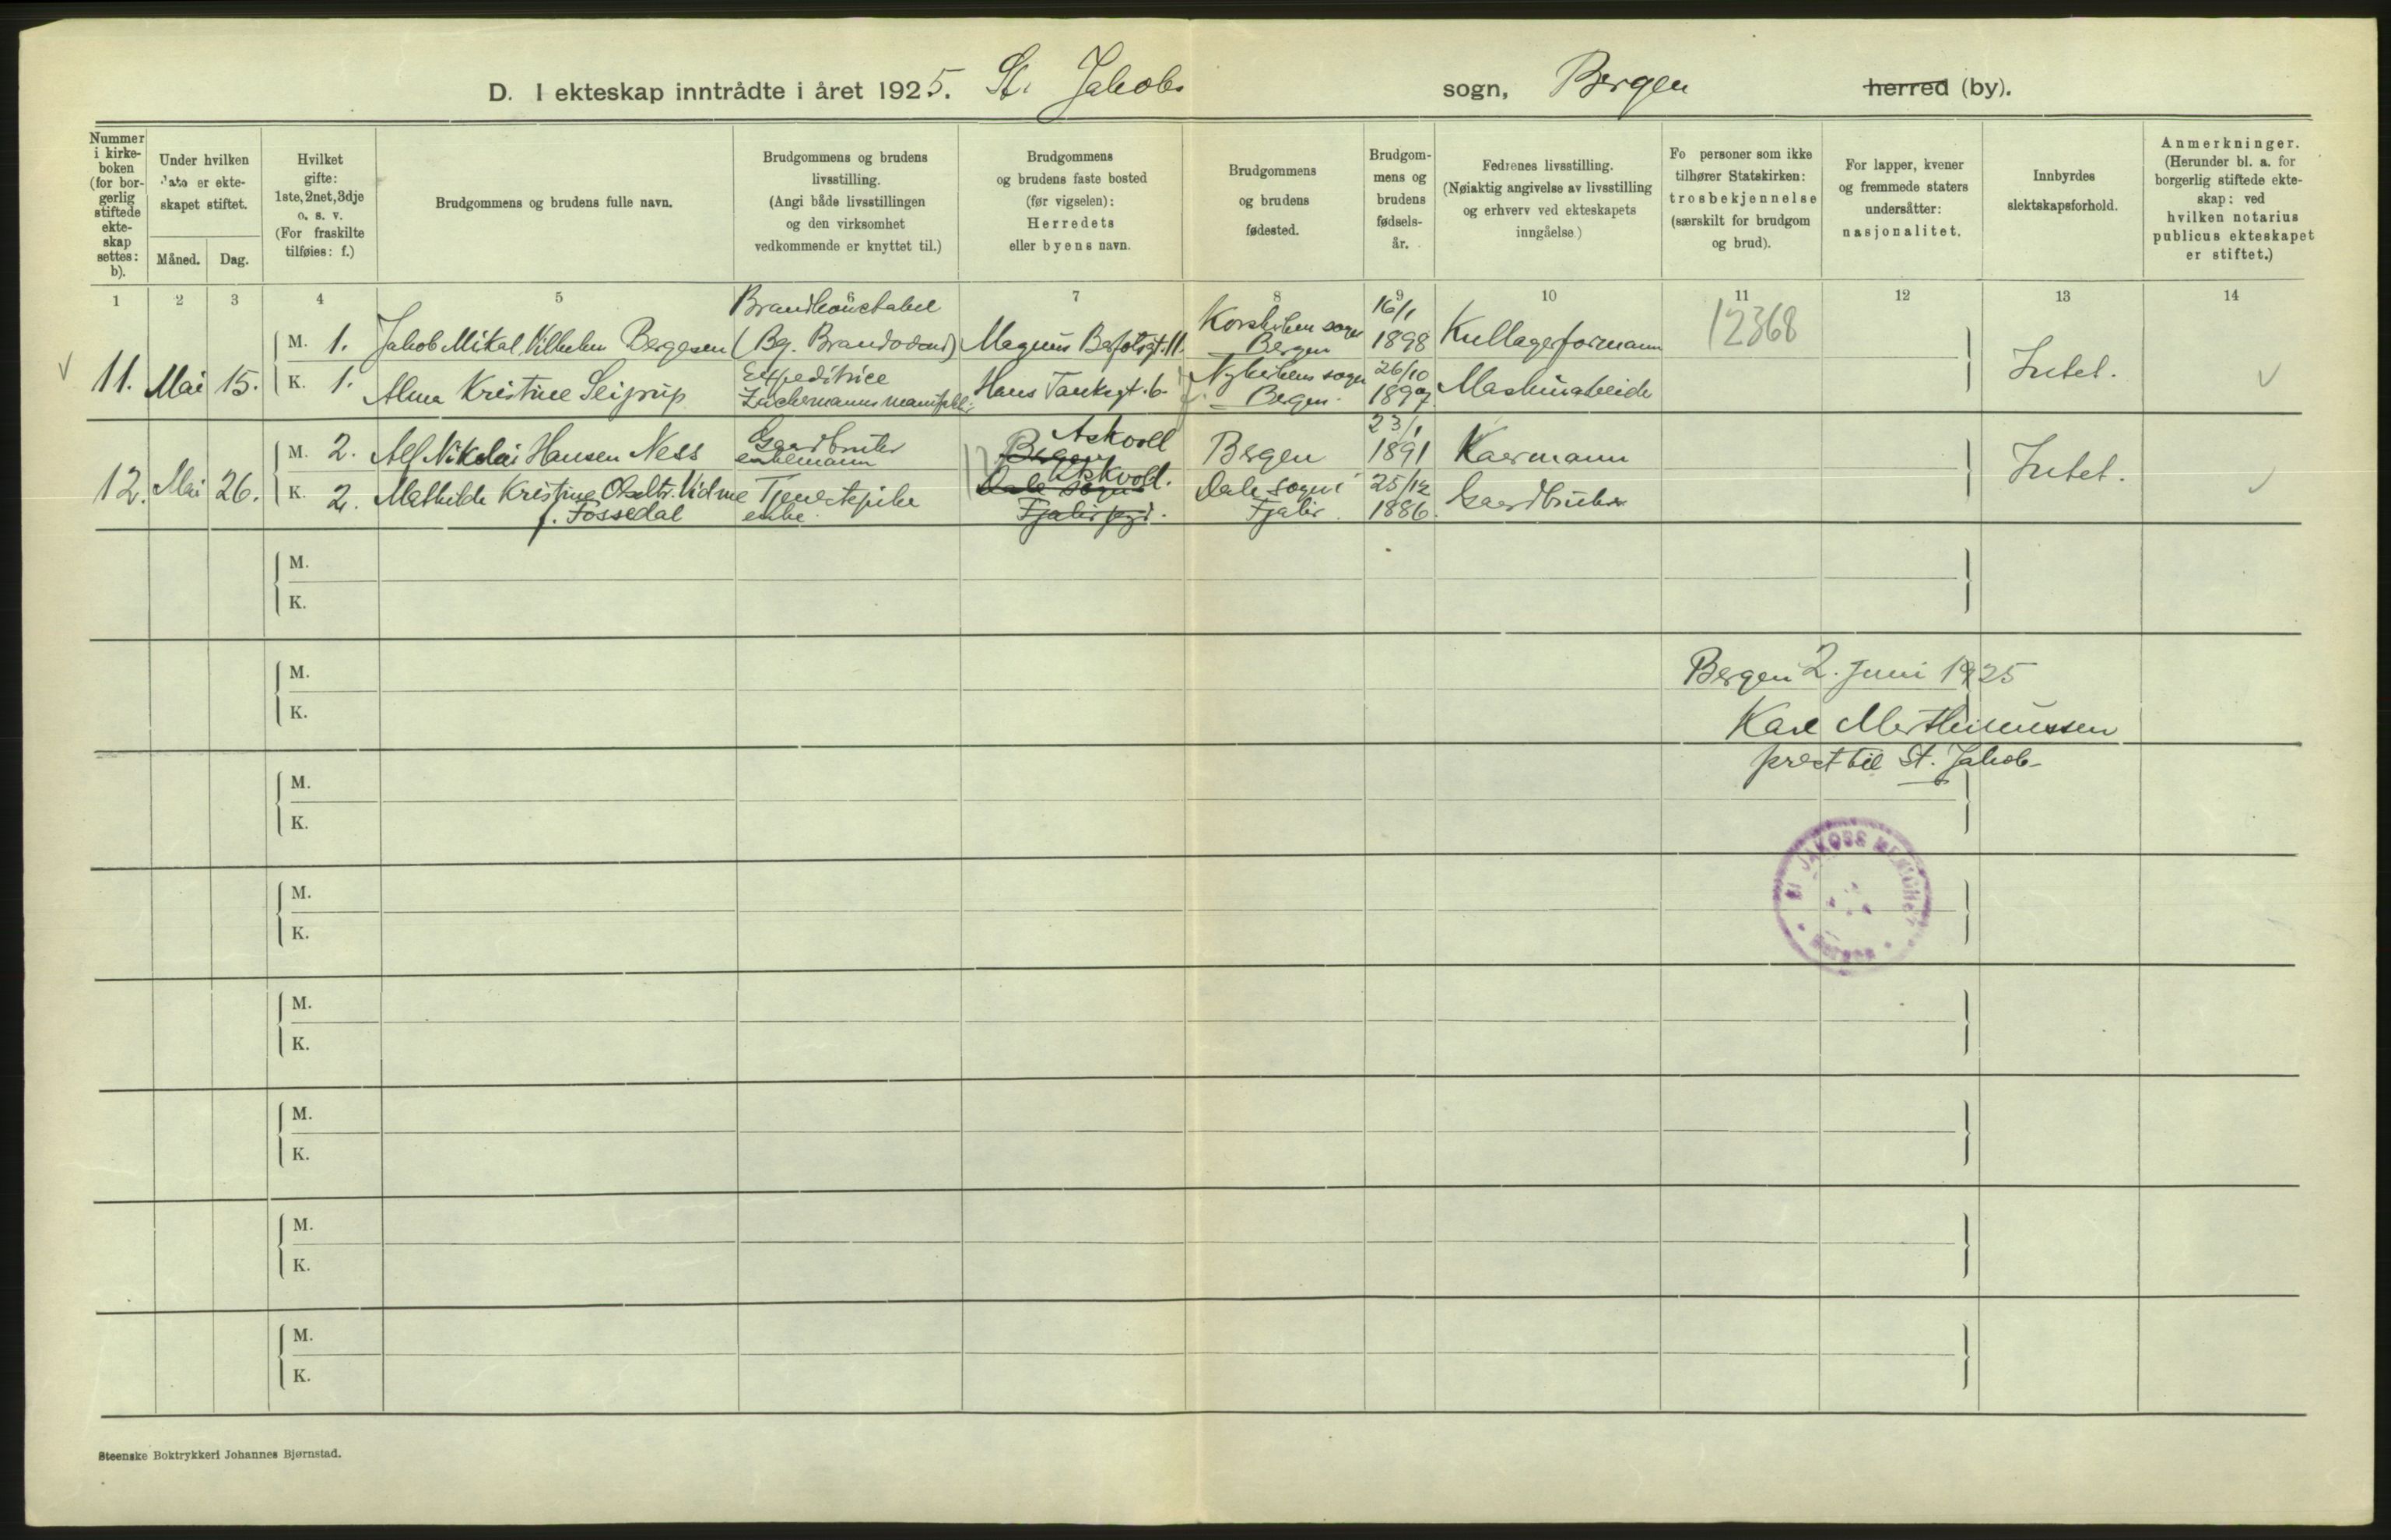 D. I ekteskap inntrådte i året 1925. St. Jakobs sogn, Bergen herred (by).
Nummer i kirke- boken (for bor- gerlig stiftede ekte- skap settes: b).
Under hvilken dato er ekte- skapet stiftet.
Måned. Dag.
Hvilket gifte: 1ste, 2net, 3dje o. s. v. (For fraskilte tilføies: f.)
Brudgommens og brudens fulle navn.
Brudgommens og brudens livsstilling. (Angi både livsstillingen og den virksomhet vedkommende er knyttet til.)
Brudgommens og brudens faste bosted (før vigselen): Herredets eller byens navn.
Brudgommens og brudens fødested.
Brudgom- mens og brudens fødsels- år.
Fedrenes livsstilling. (Nøiaktig angivelse av livsstilling og erhverv ved ekteskapets inngåelse.)
Fo personer som ikke tilhører Statskirken: trosbekjennelse (særskilt for brudgom og brud).
For lapper, kvener og fremmede staters undersåtter: nasjonalitet.
Innbyrdes slektskapsforhold.
Anmerkninger. (Herunder bl. a. for borgerlig stiftede ekte- skap: ved hvilken notarius publicus ekteskapet er stiftet.)
1 2 3 4 5 6 7 8 9 10 11 12 13 14
12368
11. Mai 15.
M. 1. Jakob Mikal Vilhelm Bergesen Brandkonstabel (Bg. Brandvæsen) Magnus Barfotsgt. 11. Korskirken sogn Bergen 16/1 1898 Kullagerformann
K. 1. Alma Kristine Seiprup Expeditrice Zuchermanns manufakt. Hans Tanksgt. 6. Nykirkens sogn Bergen. 26/10 1897 Maskinarbeider
Intet.
12. Mai 26.
M. 2. Alf Nikolai Hansen Ness Gaardbruker enkemann Bergen Askvoll Bergen 23/1 1891 Kaermann
K. 2. Mathilde Kristine Olsdtr. Vidme f. Fossedal Tjenestepike enke Dale sogn Fjaler pgd. Askvold. Dale sogn i Fjaler 25/12 1886 Gaardbruker
Intet.
M.
K.
M.
K.
Bergen 2. Juni 1925
Karl Marthinussen
prest til St. Jakob
M.
K.
ST JAKOBS MENIGHET
BERGEN
M.
K.
M.
K.
M.
K.
M.
K.
M.
K.
Steenske Boktrykkeri Johannes Bjørnstad.